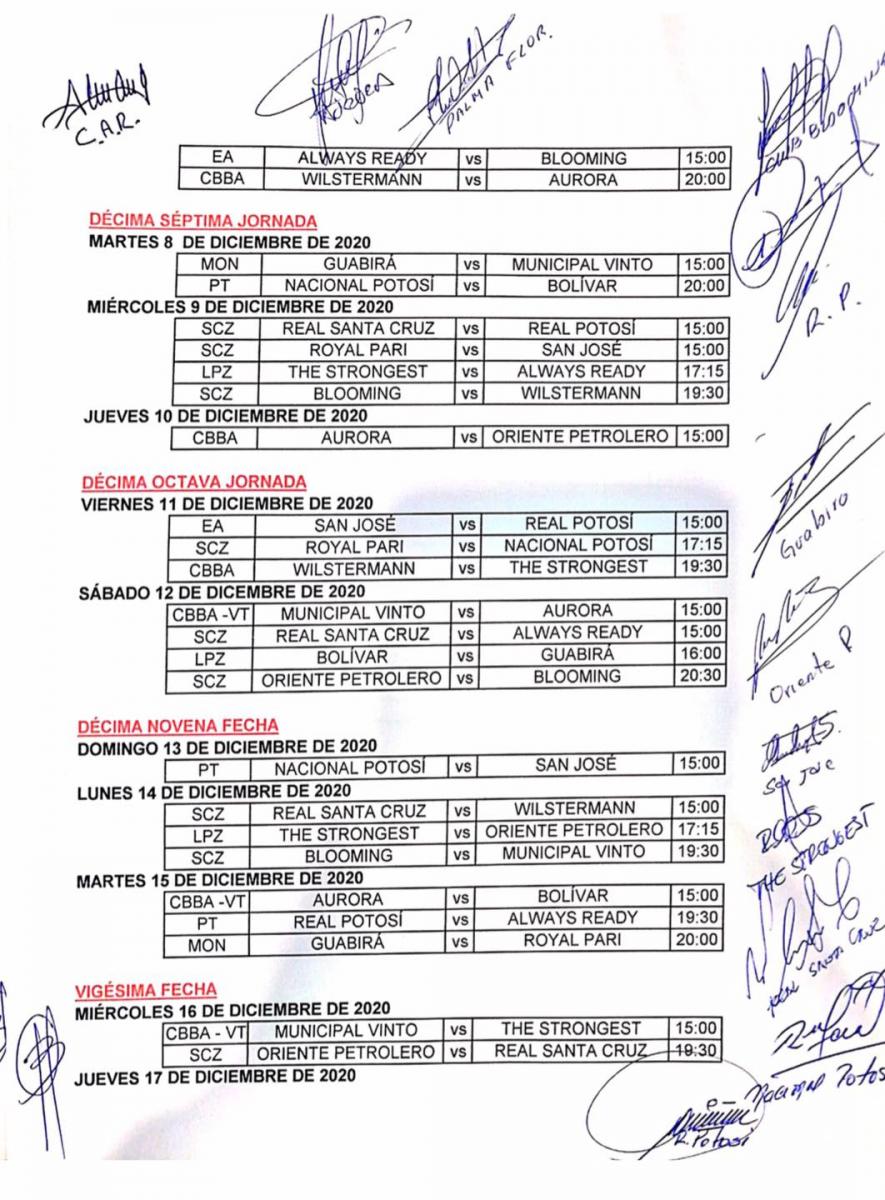 C.A.R.
PALMA FLOR.
CLUB BLOOMING
EA ALWAYS READY vs BLOOMING 15:00
CBBA WILSTERMANN vs AURORA 20:00
DÉCIMA SÉPTIMA JORNADA
MARTES 8 DE DICIEMBRE DE 2020
MON GUABIRÁ vs MUNICIPAL VINTO 15:00
PT NACIONAL POTOSÍ vs BOLÍVAR 20:00
R.P.
MIÉRCOLES 9 DE DICIEMBRE DE 2020
SCZ REAL SANTA CRUZ vs REAL POTOSÍ 15:00
SCZ ROYAL PARI vs SAN JOSÉ 15:00
LPZ THE STRONGEST vs ALWAYS READY 17:15
SCZ BLOOMING vs WILSTERMANN 19:30
JUEVES 10 DE DICIEMBRE DE 2020
CBBA AURORA vs ORIENTE PETROLERO 15:00
DÉCIMA OCTAVA JORNADA
VIERNES 11 DE DICIEMBRE DE 2020
EA SAN JOSÉ vs REAL POTOSÍ 15:00
SCZ ROYAL PARI vs NACIONAL POTOSÍ 17:15
CBBA WILSTERMANN vs THE STRONGEST 19:30
Guabira
SÁBADO 12 DE DICIEMBRE DE 2020
CBBA -VT MUNICIPAL VINTO vs AURORA 15:00
SCZ REAL SANTA CRUZ vs ALWAYS READY 15:00
LPZ BOLÍVAR vs GUABIRÁ 16:00
SCZ ORIENTE PETROLERO vs BLOOMING 20:30
Oriente P
DÉCIMA NOVENA FECHA
DOMINGO 13 DE DICIEMBRE DE 2020
PT NACIONAL POTOSÍ vs SAN JOSÉ 15:00
San Jose
LUNES 14 DE DICIEMBRE DE 2020
SCZ REAL SANTA CRUZ vs WILSTERMANN 15:00
LPZ THE STRONGEST vs ORIENTE PETROLERO 17:15
SCZ BLOOMING vs MUNICIPAL VINTO 19:30
THE STRONGEST
MARTES 15 DE DICIEMBRE DE 2020
CBBA -VT AURORA vs BOLÍVAR 15:00
PT REAL POTOSÍ vs ALWAYS READY 19:30
MON GUABIRÁ vs ROYAL PARI 20:00
REAL SANTA CRUZ
VIGÉSIMA FECHA
MIÉRCOLES 16 DE DICIEMBRE DE 2020
CBBA - VT MUNICIPAL VINTO vs THE STRONGEST 15:00
SCZ ORIENTE PETROLERO vs REAL SANTA CRUZ 19:30
JUEVES 17 DE DICIEMBRE DE 2020
Nacional Potosi
R. Potosí